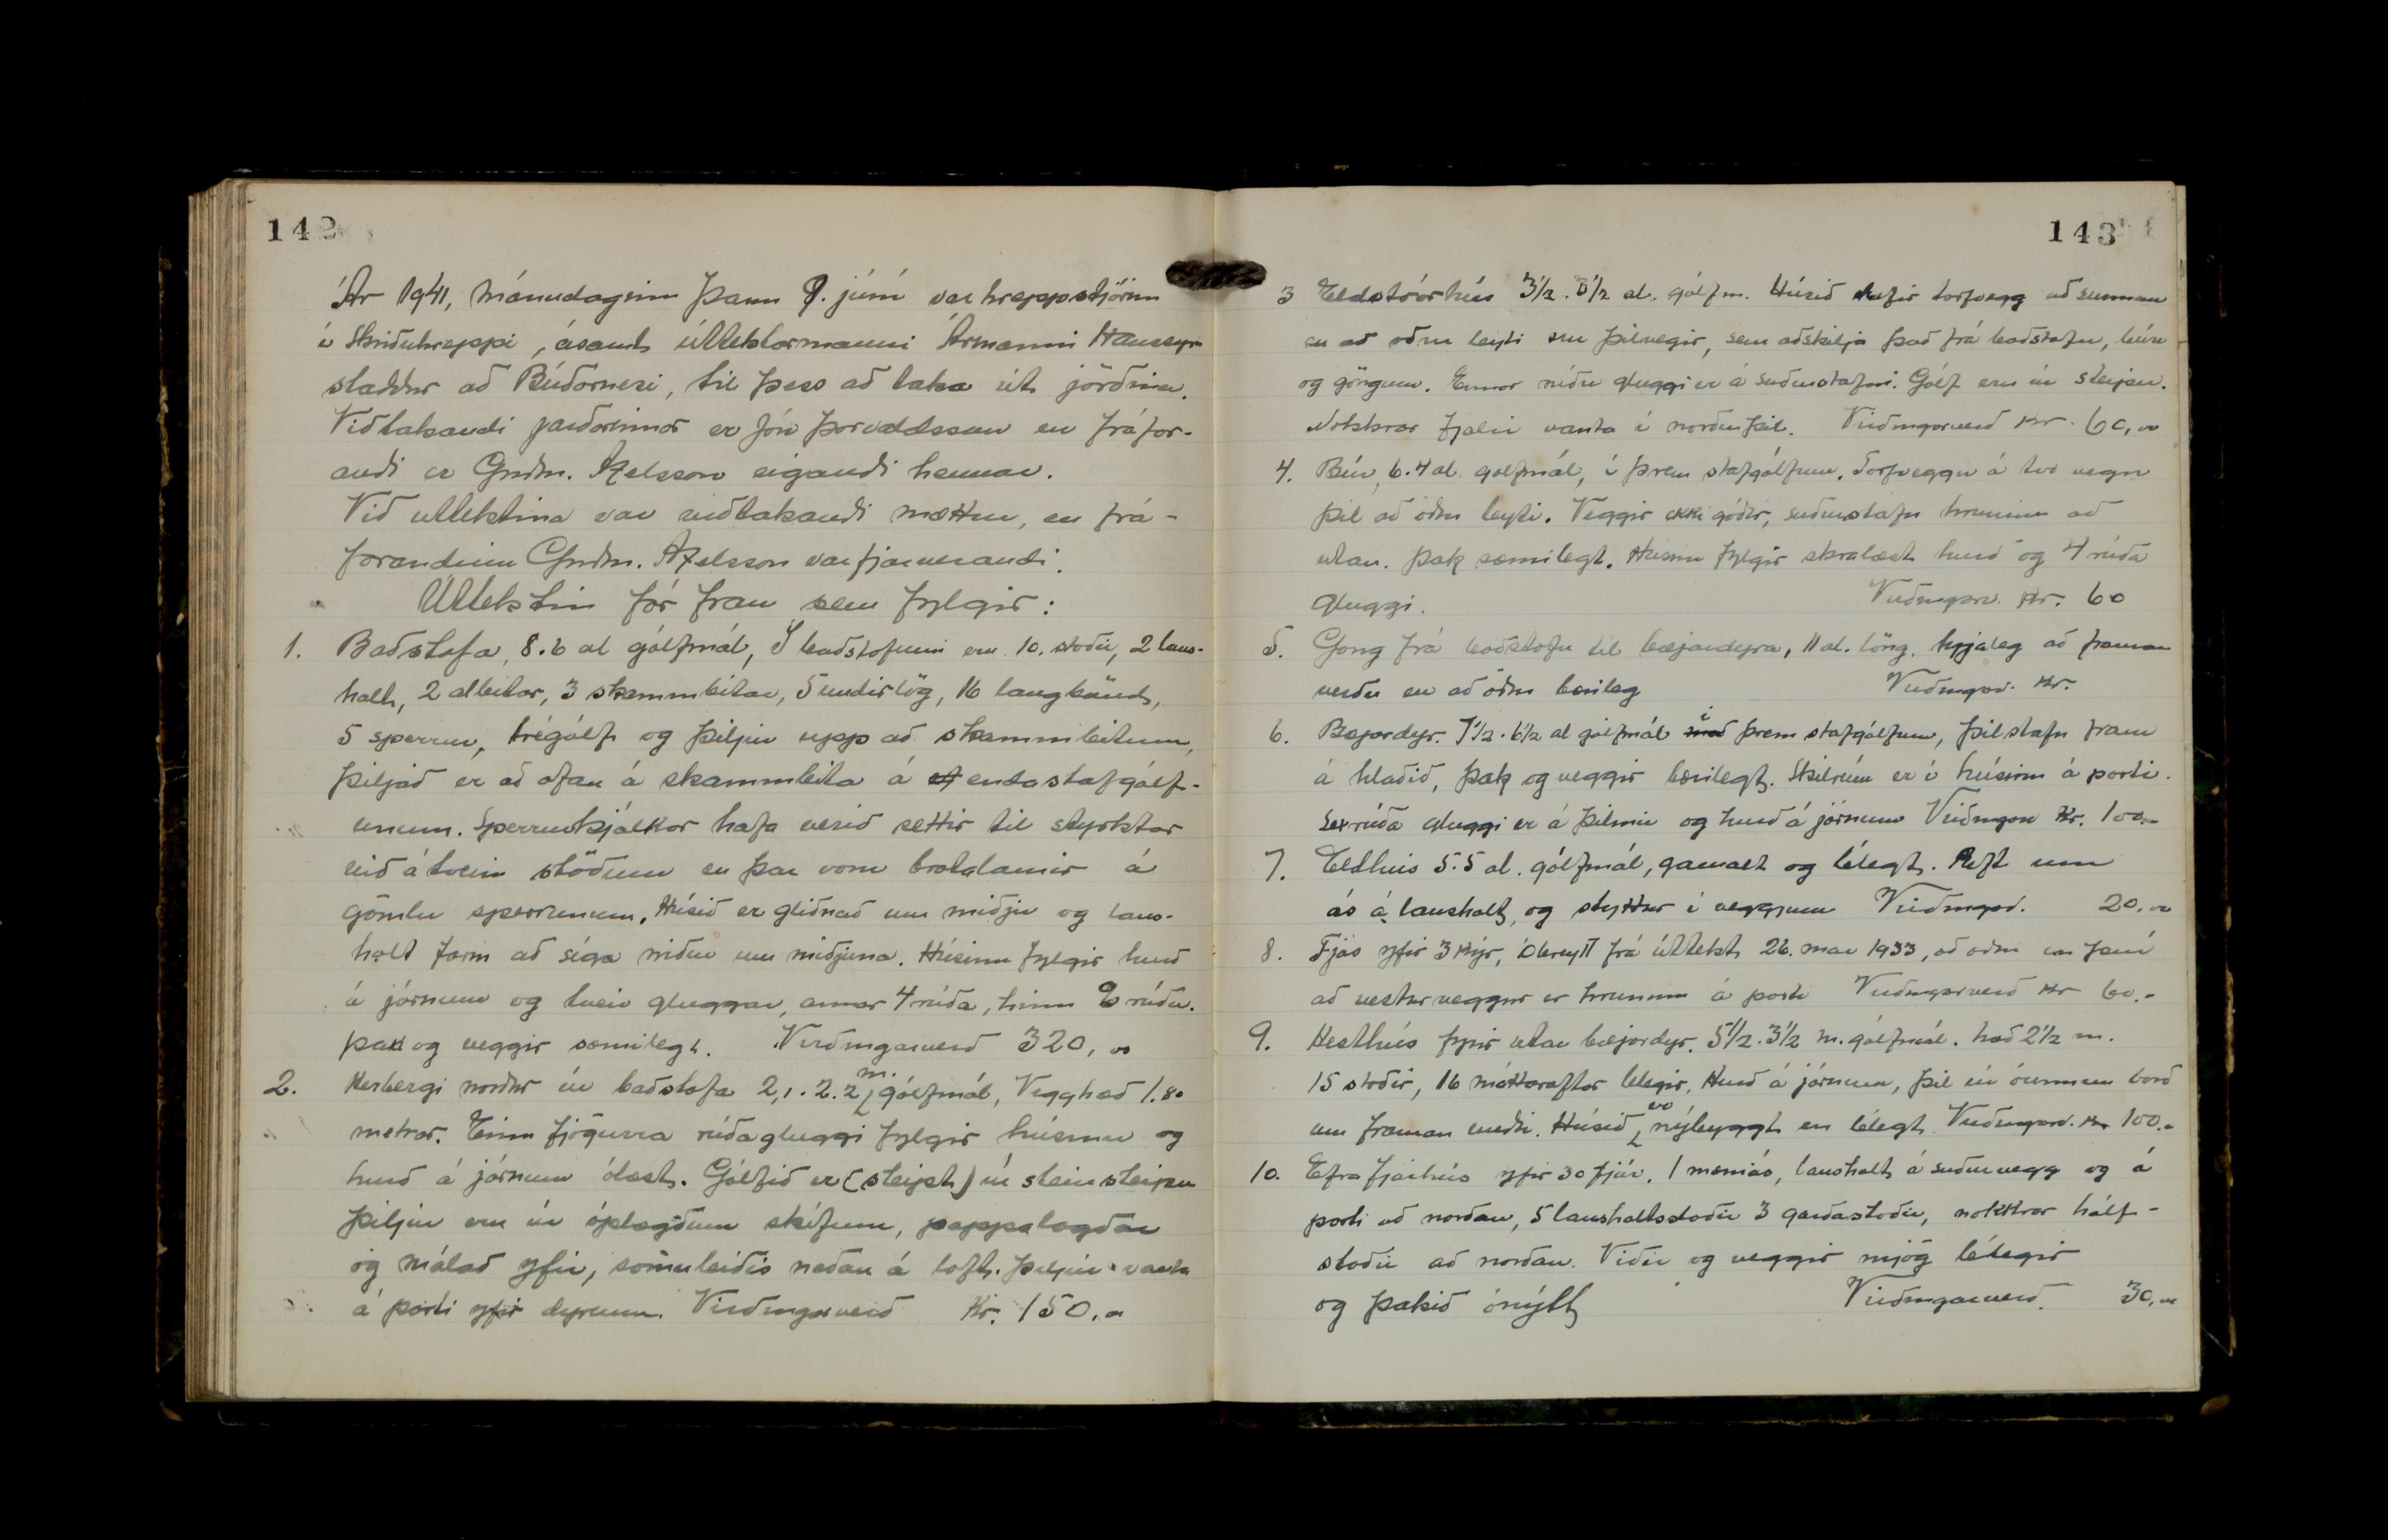 142
Ár 1941, mánudaginn þann 9. júní var hreppstjórinn
í Skriðuhreppi, ásamt úttektarmanni Ármanni Hanssyni
staddur að Búðarnesi, til þess að taka út jörðina.
Viðtakandi jarðarinnar er Jón Þorvaldsson en fráfar-
andi er Guðm. Axelsson eigandi hennar.
Við úttektina var viðtakandi mættur, en frá-
farandinn Guðm. Axelsson var fjarverandi.
Úttektin fór fram sem fylgir:
1. Baðstofa, 8.6 al gólfmál, Í baðstofunni eru 10. stoðir, 2 laus-
holt, 2 albitar, 3 skammbitar, 5 undirlög, 16 langbönd,
5 sperrur, trégólf og þiljur upp að skammbitum,
þiljað er að ofan á skammbita á endastafgólf-
unum. Sperrukjálkar hafa verið settir til styrktar
við á tveim stöðum en þar voru brotalamir á
gömlu sperrunum. Húsið er gliðnað um miðju og laus-
holt farin að síga niður um miðjuna. Húsinu fylgir hurð
á járnum og tveir gluggar, annar 4 rúða, hinn 2 rúðu.
þak og veggir sæmilegt. Virðingarverð 320,00
2. Herbergi norður úr baðstofu 2,1. 2.2 m. gólfmál, Vegghæð 1.80
metrar. Einn fjögurra rúðagluggi fylgir húsinu og
hurð á járnum ólæst. Gólfið er (steypt) úr steinsteypu
þiljur eru úr óplægðum skífum, pappalagðar
og málað yfir, sömuleiðis neðan á loft. Þiljur vanta
á parti yfir dyrum. Virðingarverð Kr. 150.00
143
3 Eldstóarhús 3½. 3½ al. gólfm. Húsið hefir torfvegg að sunnan
en að öðru leyti eru þilvegir, sem aðskilja það frá baðstofu, búri
og göngum. Einnar rúðu gluggi er á suðurstafni. Gólf eru úr steypu.
Nokkrar fjalir vanta í norðurþil. Virðingarverð kr. 60,00
4. Búr, 6.4 al gólfmál, í þrem stafgólfum. Torfveggir á tvo vegu
þil að öðru leyti. Veggir ekki góðir, suðurstafn hruninn að
utan. Þak sæmilegt. Húsinu fylgir skrálæst hurð og 4 rúða
gluggi. Virðingarv. Kr. 60
5. Göng frá baðstofu til bæjardyra, 11 al. löng, hrjáleg að framan
verðu en að öðru bærileg Virðingarv. Kr.
6. Bæjardyr. 7½. 6½ al gólfmál í þrem stafgólfum, þilstafn fram
á hlaðið, þak og veggir bærilegt. Skilrúm er í húsinu á parti.
Sexrúða gluggi er á þilinu og hurð á járnum Virðingarv Kr. 100.-
7. Eldhús 5.5 al. gólfmál, gamalt og lélegt. Reft um
ás á lausholt, og styttur í veggjum Virðingarv. 20.00
8. Fjós yfir 3 kýr, óbreytt frá úttekt 26. maí 1933, að öðru en því
að vesturveggur er hruninn á parti Virðingarverð kr 60.-
9. Hesthús fyrir utan bæjardyr. 5½. 3½ m. gólfmál. hæð 2½ m.
15 stoðir, 16 máttarraftar lélegir. Hurð á járnum, þil úr óunnum borð
um framan undir. Húsið er nýbyggt en lélegt. Virðingarv. kr 100.-
10. Efra fjárhús yfir 30 fjár. 1 mæniás, lausholt á suðurvegg og á
parti að norðan, 5 lausholtsstoðir 3 garðastoðir, nokkrar hálf-
stoðir að norðan. Viðir og veggir mjög lélegir
og þakið ónýtt Virðingarverð. 30,00